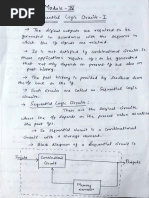 Module - IV
Sequential Logic Circuits - I
→ The digital outputs are required to be
generated in accordance with the sequence in
which the i/p signals are received.
→ It is not satisfied by combinational circuits. In
these applications require o/ps to be generated
that are not only dependent on present i/p but also on
past history.
→ The past history is provided by feedback from
the o/p back to i/p.
→ Such ckts are called as Sequential Circuits.
→ Sequential Logic Circuits:
→ These are the digital circuits
where the o/p depends on the previous value
→ Sequential Circuit is a Combinational Circuit
with a storage element.
→ Block diagram of a Sequential Circuit is
Inputs
Combinational
Circuit
Outputs
Memory